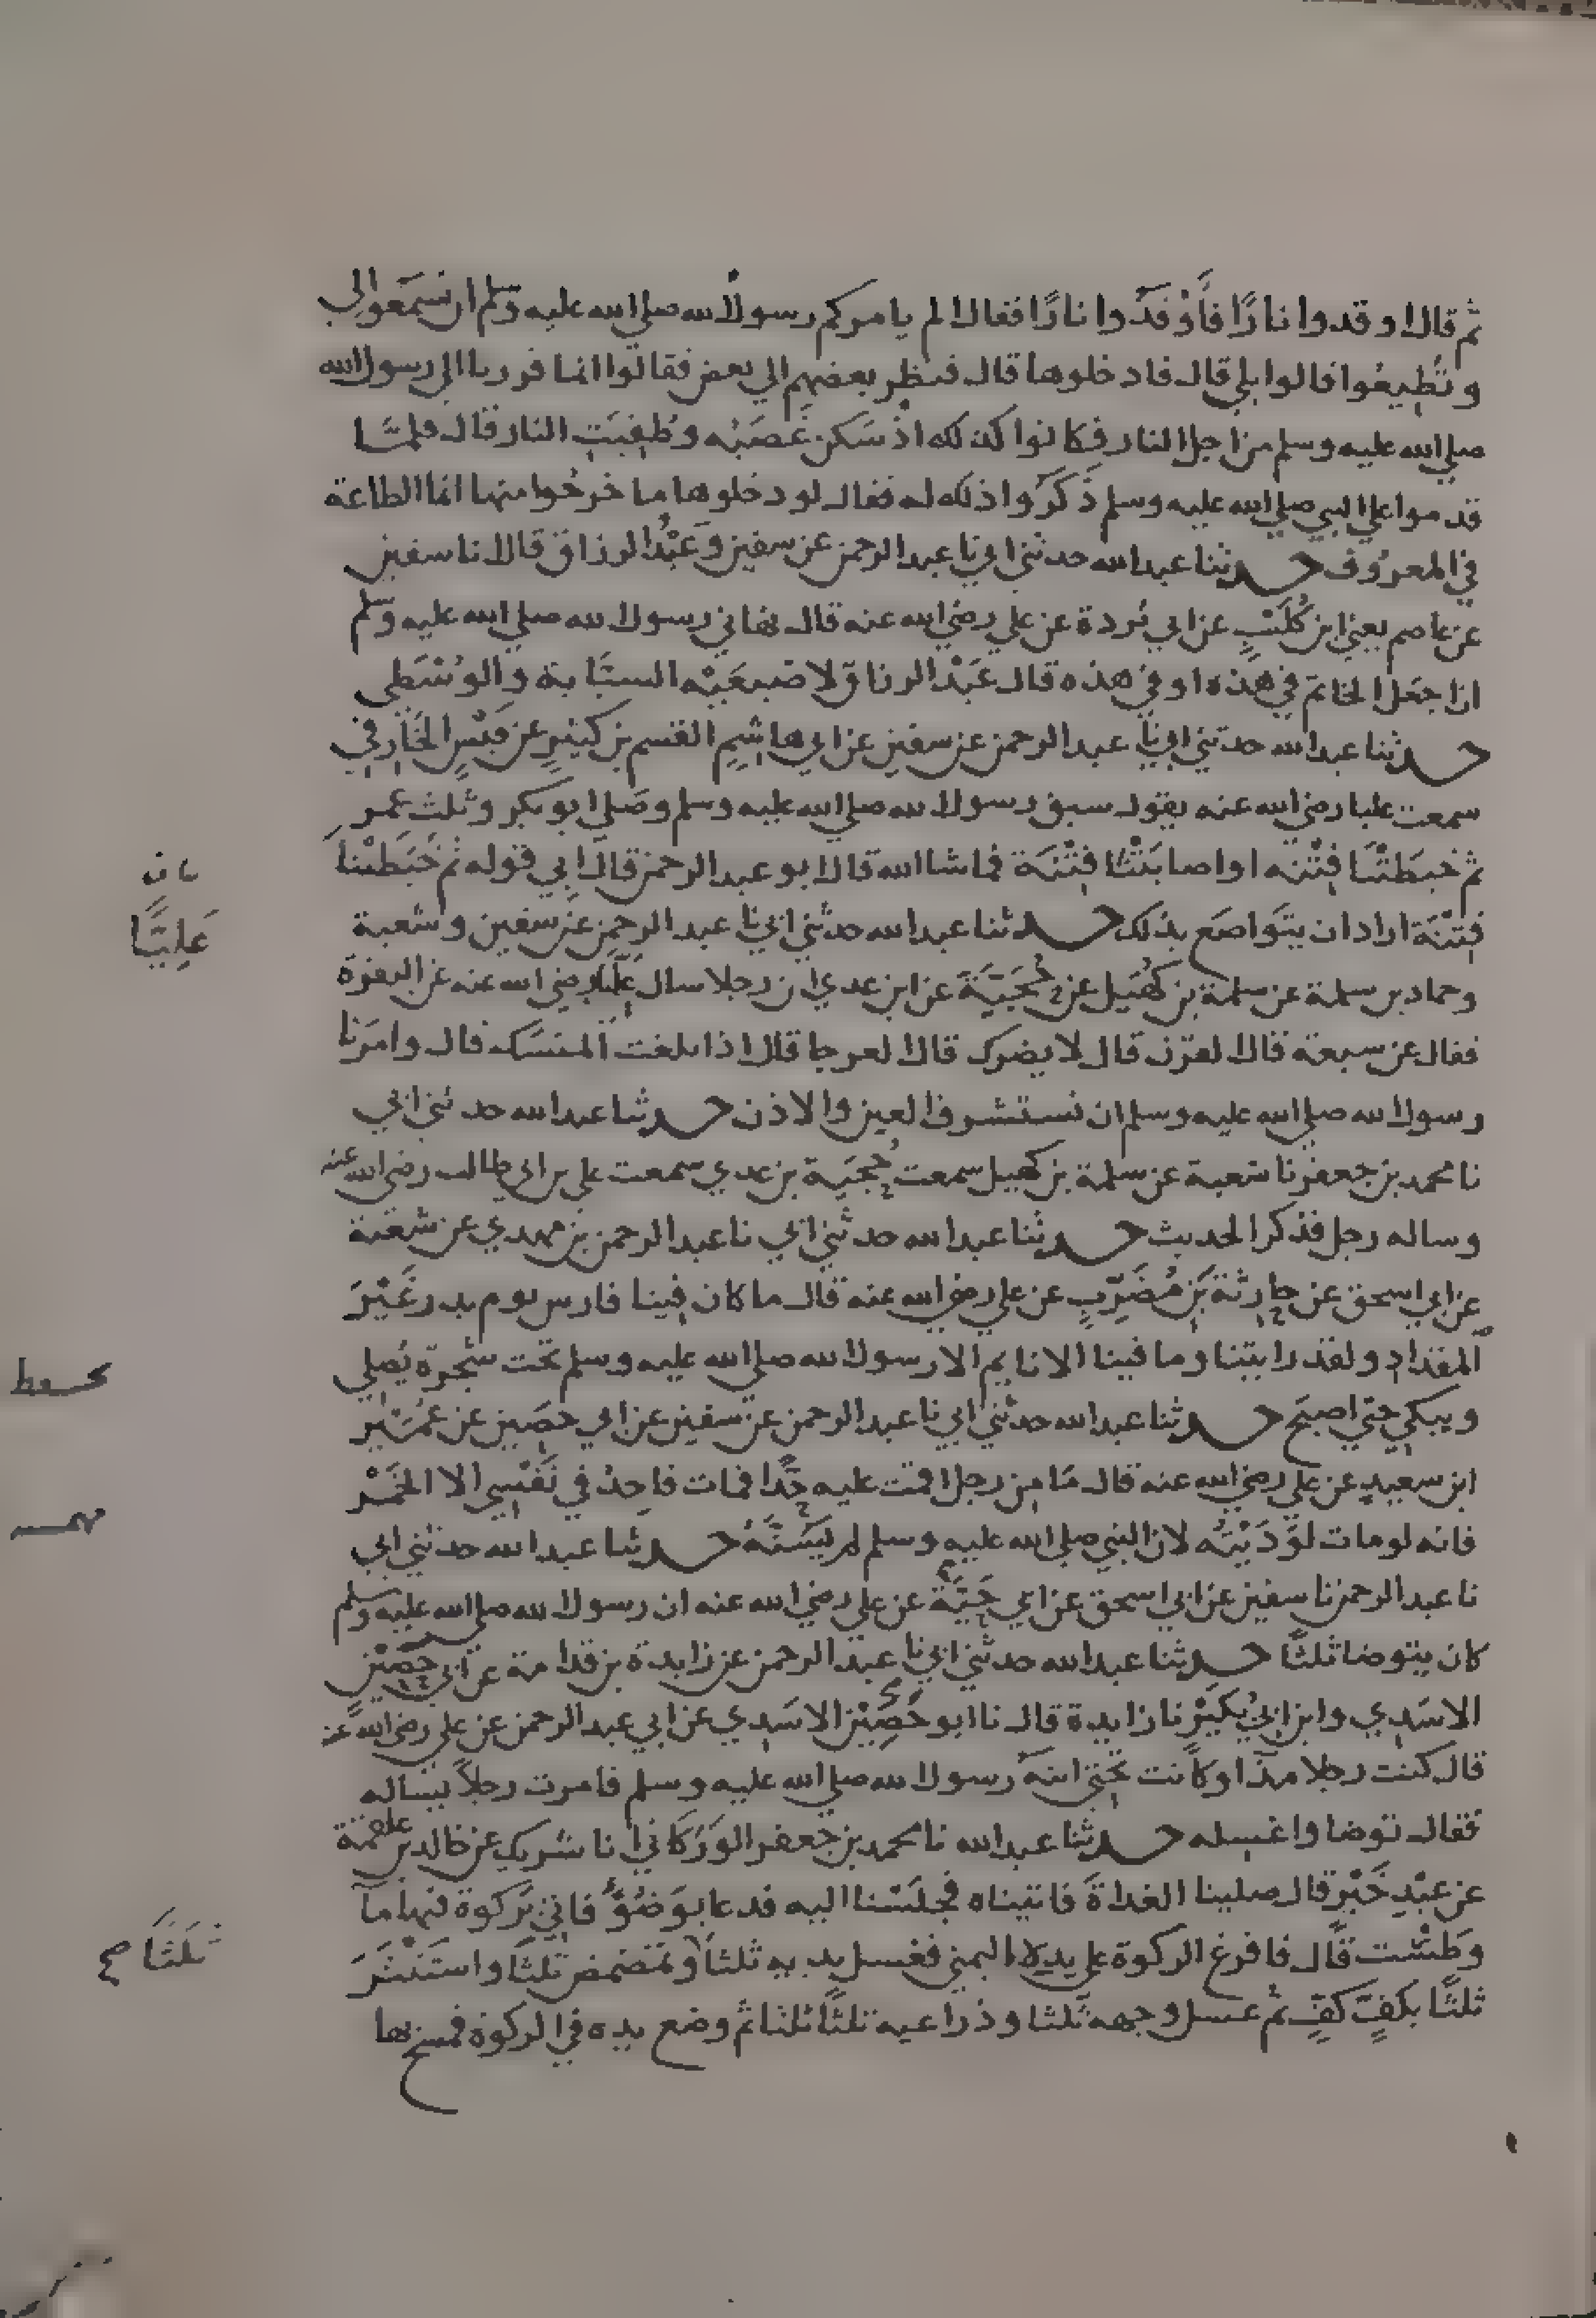 ثم قال اوقدوا نارًا فَأَوْقَدُوا نارًا فقال الم يامركم رسول الله صلى الله عليه وسلم ان تسمَعوا لي
و تُطِيعُوا قالوا بلي قال فادخلوها قال فنظر بعضهم الي بعض فقالوا انما فررنا الي رسول الله
صلي الله عليه وسلم من اجل النار فكانوا كذلك اذ سَكن غَضَبُه وطُفِيَتِ النار قال فلمَّا
قدموا علي النبي صلي الله عليه وسلم ذَكَرُوا ذلك له فقال لو دخلوها ما خرجُوا منها انما الطاعة
في المعرُوف حدثنا عبد الله حدثني ابي نا عبد الرحمن عن سفين وعَبْدُ الرزاق قالا نا سفين
عن عاصم يعني ابن كُلَيْبٍ عن ابي بُردة عن علي رضي الله عنه قال نهاني رسول الله صلي الله عليه وسلم
ان اجعَل الخاتم في هذه او في هذه قال عَبْدُ الرزاق لاصبعَيْه السبَّابة والوُسْطي
حدثنا عبد الله حدثني ابي نا عبد الرحمن عن سفين عن ابي هاشِمٍ القسم بن كثيرٍ عن قيْسٍ الخَارِفي
سمعت عليا رضي الله عنه يقول سبق رسول الله صلي الله عليه وسلم وصَلي ابو بكر وثلث عمر
ثم خبَطَتْنَا فِتْنه او اصابَتْنا فِتْنَة فما شا الله قال ابو عبد الرحمن قال ابي قوله ثم خَبَطَتْنا
فِتْنَة اراد ان يتَواضَع بذلك حدثنا عبد الله حدثني ابي نا عبد الرحمن عن سفين وشعبة
وحماد بن سلمة عن سلمة بن كُهَيل عن حُجَيَّةَ عن ابن عدي ان رجلا سال عليا رضي الله عنه عن البقرة
فقال عن سبعة قال القرن قال لا يضرك قال العرجا قال اذا بلغت المنسَك قال وامَرَنا
رسول الله صلي الله عليه وسلم ان نستشرف العين والاذن حدثنا عبد الله حدثني ابي
نا محمد بن جعفر نا شعبة عن سلمة بن كهيل سمعت حُجَيَة بن عدي سمعت علي بن ابي طالب رضي الله عنه
وساله رجل فذكر الحديث حدثنا عبد الله حدثني ابي نا عبد الرحمن بن مهدي عن شعبة
عن ابي اسحق عن حارثة بن مُضَرِّبٍ عن علي رضي الله عنه قال ما كان فِينا فارس يوم بدر غَيْرَ
المقداد ولقد رايتنا وما فينا الا نايم الا رسول الله صلي الله عليه وسلم تحت شجرة يُصلي
ويبكي حتي اصبَح حدثنا عبد الله حدثني ابي نا عبد الرحمن عن سفين عن ابي حصَين عن عُمَيْر
ابن سعيدٍ عن علي رضي الله عنه قال مَا مِن رجل اقمت عليه حَدًّا فمات فاجِدُ في نَفْسِي الا الخَمْر
فانه لو مات لوَدَيْتُه لان النبي صلي الله عليه وسلم لم يَسُنَّهُ حدثنا عبد الله حدثني ابي
نا عبد الرحمن نا سفين عن ابي اسحق عن ابي حَيَّةَ عن علي رضي الله عنه ان رسول الله صلي الله عليه وسلم
كان يتوضا ثلثًا حدثنا عبد الله حدثني ابي نا عبد الرحمن عن زايدة بن قدامة عن ابي حَصِيْنٍ
الاسَدِي وابن ابي بُكَيْر نا زايدة قال نا ابو حُصَيْن الاسَدِي عن ابي عبد الرحمن عن علي رضي الله عنه
قال كنت رجلا مذَّا وكانت تَحْتي ابنَة رسول الله صلي الله عليه وسلم فامرت رجلاً يساله
فقال توضا واغسِله حدثنا عبد الله نا محمد بن جعفر الوَرْكَاني انا شريك عن خالد بن علقمة
عن عبْدِ خَيْر قال صلينا الغداةَ فاتيناه فجلَسْنا اليه فدعا بوَضُوْءٍ فاتي بَركوة فيها مآ
وطَسْت قال فافرغ الركوة علي يده اليمني فغسل يديه ثلثاً وتمَضمض ثلثًا واستَنْثَرَ
ثلثًا بكفٍّ كفٍّ ثم غسل وجهه ثلثا وذراعيه ثلثًا ثلثا ثم وضع يده في الركوة فمسح بها
عَلِيًّا
ثلثًا صح